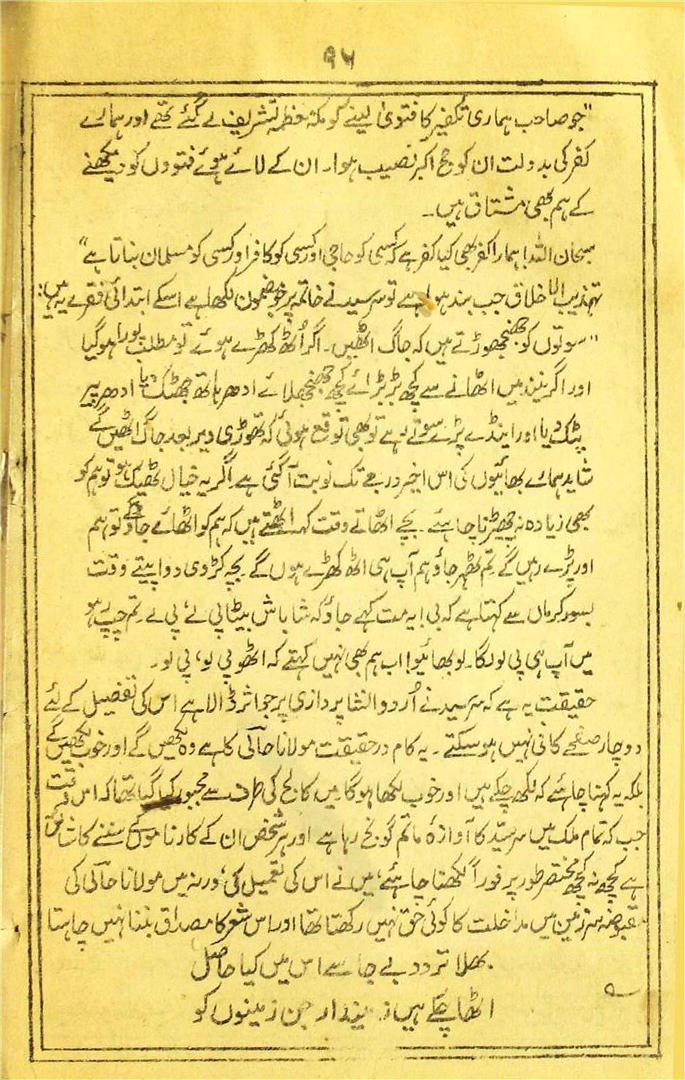 ۹۵
"جو صاحب ہماری تکفیر کا فتویٰ لینے کو مکہ معظمہ تشریف لے گئے تھے اور ہمارے
کفر کی بدولت ان کو حج اکبر نصیب ہوا۔ ان کے لائے ہوئے فتووں کو دیکھنے
کے ہم بھی مشتاق ہیں۔
سبحان اللہ! ہمارا کفر بھی کیا کفر ہے کہ کسی کو حاجی اور کسی کو کافر اور کسی کو مسلمان بناتا ہے"
تہذیب الاخلاق جب بند ہوا ہے تو سرسید نے خاتمہ پر جو مضمون لکھا ہے اسکے ابتدائی فقرے یہ ہیں:
"سوتوں کو جھنجھوڑتے ہیں کہ جاگ اٹھیں۔ اگر اُٹھ کھڑے ہوئے تو مطلب پورا ہو گیا
اور اگر نیند میں اٹھانے سے کچھ بڑبڑائے کچھ جھنجھلائے ادھر ہاتھ جھٹک دیا ادھر پیر
پٹک دیا اور اینڈے پڑے سوتے رہے تو بھی توقع ہوئی کہ تھوڑی دیر بعد جاگ اٹھیں گے
شاید ہمارے بھائیوں کی اس اخیر درجے تک نوبت آگئی ہے اگر یہ خیال ٹھیک ہو تو ہم کو
بھی زیادہ نہ چھیڑنا چاہئے۔ بچے اٹھاتے وقت کہہ اٹھتے ہیں کہ ہم کو اٹھائے جاؤ گے تو ہم
اور پڑے رہیں گے تم ٹھہر جاؤ ہم آپ ہی اٹھ کھڑے ہوں گے۔ بچہ کڑوی دوا پیتے وقت
بسور کر ماں سے کہتا ہے کہ بی! یہ مت کہے جاؤ کہ شاباش بیٹا پی لے، پی لے۔ تم چپ رہو
میں آپ ہی پی لوں گا۔ لو بھائیو! اب ہم بھی نہیں کہتے کہ اٹھو پی لو، پی لو۔
حقیقت یہ ہے کہ سرسید نے اُردو انشا پردازی پر جو اثر ڈالا ہے اس کی تفصیل کے لئے
دو چار صفحے کافی نہیں ہو سکتے۔ یہ کام درحقیقت مولانا حالی کا ہے وہ لکھیں گے اور خوب لکھیں گے
بلکہ یہ کہنا چاہئے کہ لکھ چکے ہیں اور خوب لکھا ہوگا میں کالج کی طرف سے مجبور کیا گیا تھا کہ اس وقت
جب کہ تمام ملک میں سرسید کا آوازۂ ماتم گونج رہا ہے اور ہر شخص ان کے کارنامے سننے کا شائق
ہے کچھ نہ کچھ مختصر طور پر فوراً لکھنا چاہئے، میں نے اس کی تعمیل کی، ورنہ میں مولانا حالی کی
مقبوضہ سرزمین میں مداخلت کا کوئی حق نہیں رکھتا تھا اور اس شعر کا مصداق بننا نہیں چاہتا
بھلا تردد بے جا سے اس میں کیا حاصل
اٹھا چکے ہیں زمیندار جن زمینوں کو